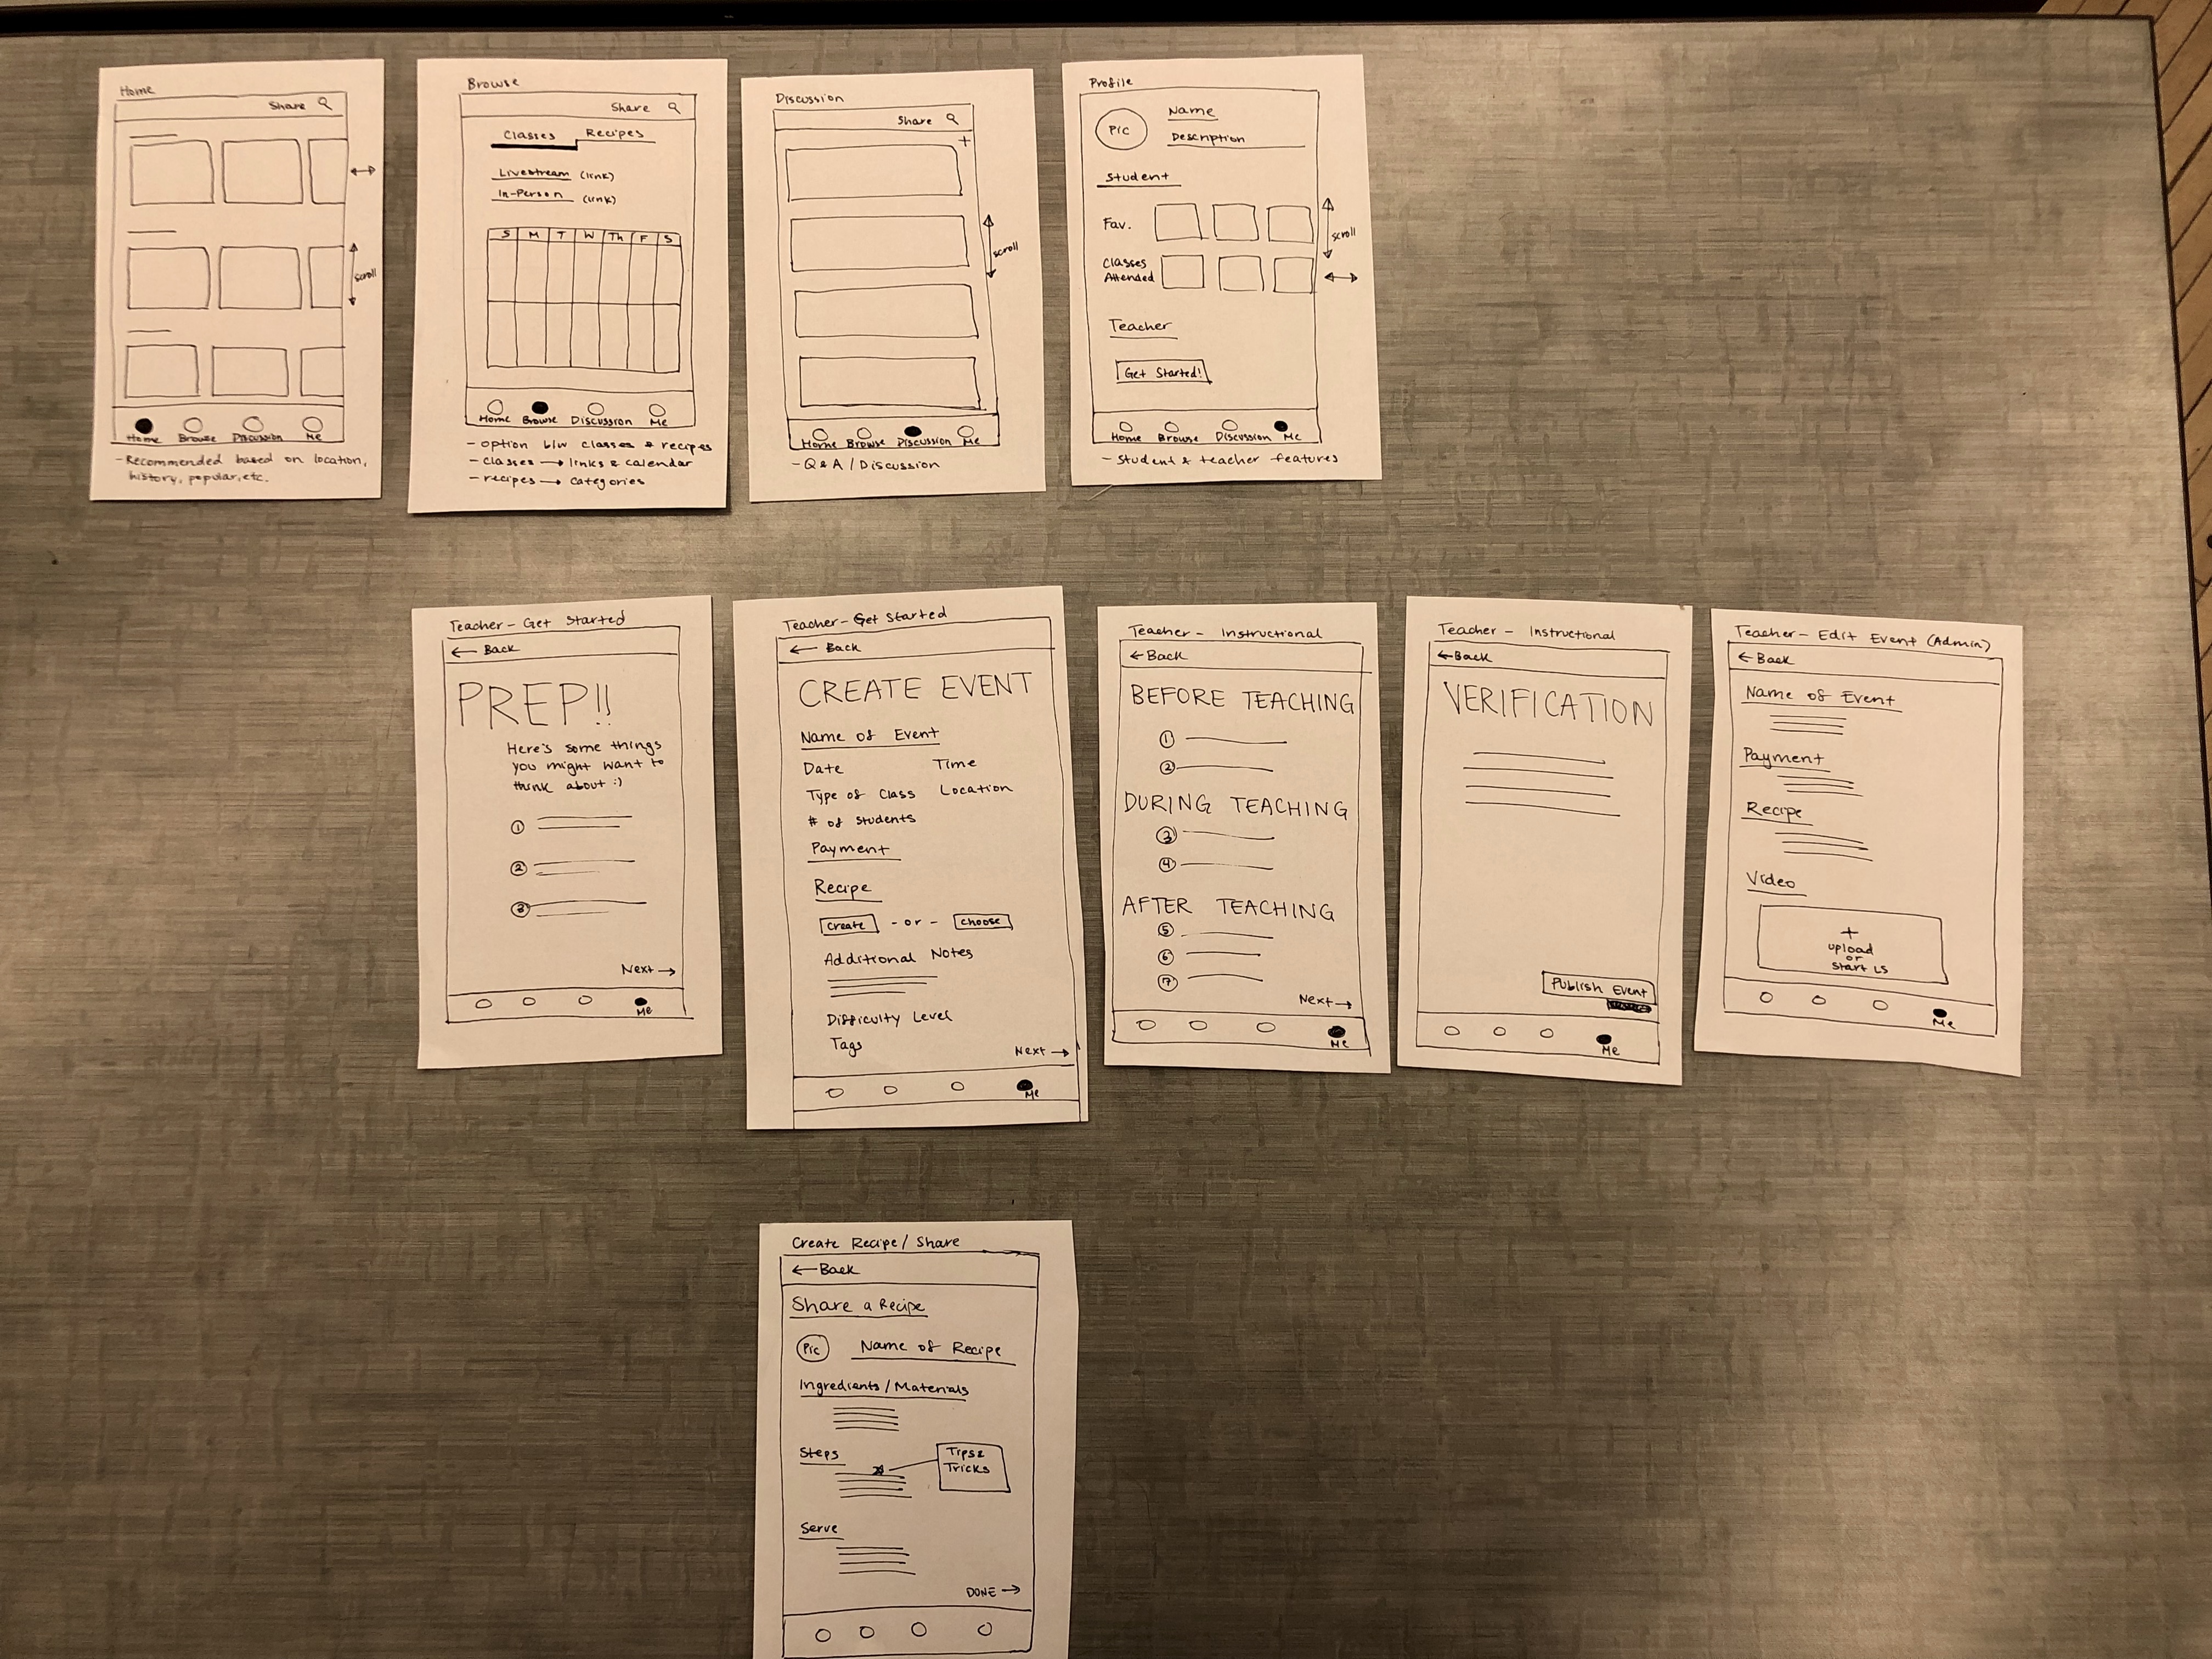 Home
Share
Home Browse Discussion Me
- Recommended based on location,
history, popular, etc.
scroll
Browse
Share
Classes Recipes
Livestream (link)
In-Person (link)
S M T W Th F S
Home Browse Discussion Me
- option b/w classes & recipes
- classes → links & calendar
- recipes → categories
Discussion
Share
+
scroll
Home Browse Discussion Me
- Q & A / Discussion
Profile
Pic
Name
Description
Student
Fav.
scroll
Classes
Attended
Teacher
Get Started!
Home Browse Discussion Me
- student & teacher features
Teacher - Get Started
← Back
PREP!!
Here's some things
you might want to
think about :)
1
2
3
Next →
Me
Teacher - Get Started
← Back
CREATE EVENT
Name of Event
Date Time
Type of Class Location
# of students
Payment
Recipe
Create - or - Choose
Additional Notes
Difficulty Level
Tags
Next →
Me
Teacher - Instructional
← Back
BEFORE TEACHING
1
2
DURING TEACHING
3
4
AFTER TEACHING
5
6
7
Next →
Me
Teacher - Instructional
← Back
VERIFICATION
Publish Event
Me
Teacher - Edit Event (Admin)
← Back
Name of Event
Payment
Recipe
Video
+
upload
or
Start LS
Me
Create Recipe / Share
← Back
Share a Recipe
Pic
Name of Recipe
Ingredients / Materials
Steps
Tips &
Tricks
Serve
DONE →